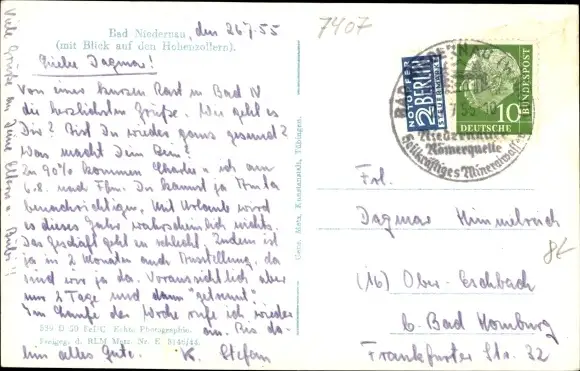 Bad Niedernau, den 26.7.55
(mit Blick auf den Hohenzollern).
7407
Liebe Dagmar!
Von einer kurzen Rast in Bad N
die herzlichsten Grüße. Wie geht es
Dir? Bist Du wieder ganz gesund?
Was macht Dein Bein?
Zu 90% kommen Charlie u. ich am
6.8. nach Ffm. Du kannst ja
benachrichtigen. Mit Urlaub wird
es dieses Jahr wahrscheinlich nichts.
Das Geschäft geht zu schlecht. Zudem ist
ja in 2 Monaten auch Ausstellung, da
sind wir ja da. Voraussichtlich aber
nur 2 Tage und dann "getrennt".
Im Laufe der Woche rufe ich wieder
an. Bis da-
hin alles Gute. K. Stefan
Viele Grüße an Deine Eltern u.
559 D 50 Echte Photographie.
Freigeg. d. RLM
Gebr. Metz, Kunstanstalt, Tübingen.
NOTOPFER
2 BERLIN
STEUERMARKE
DEUTSCHE
BUNDESPOST
10
BAD NIEDERNAU
Niedernauer
Römerquelle
Heilkräftiges Mineralwasser
Frl.
Dagmar Himmelreich
(16) Ober-Eschbach
b. Bad Homburg
Frankfurter Str. 32